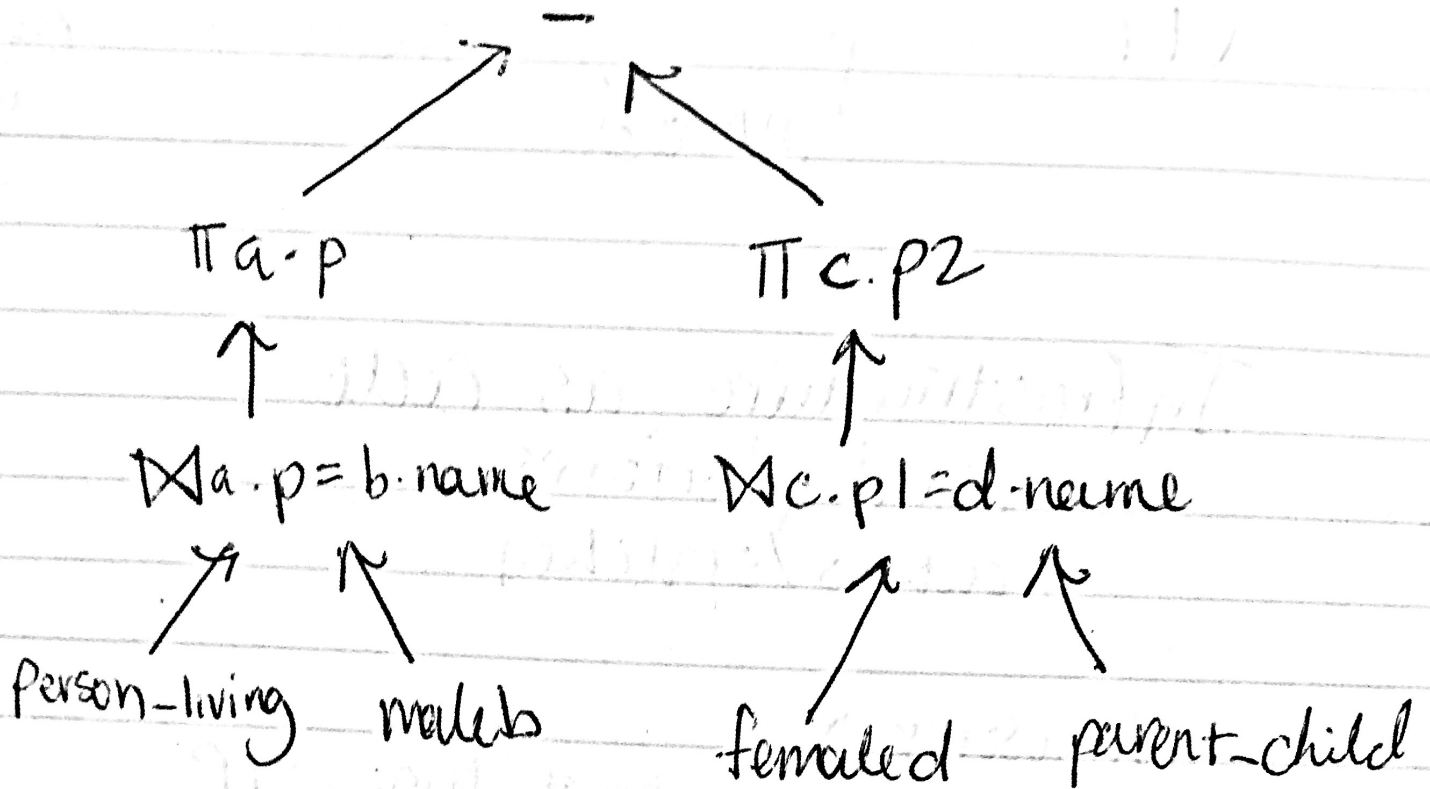 −
π a.p π c.p2
⋈ a.p = b.name ⋈ c.p1 = d.name
person_living male b female d parent_child